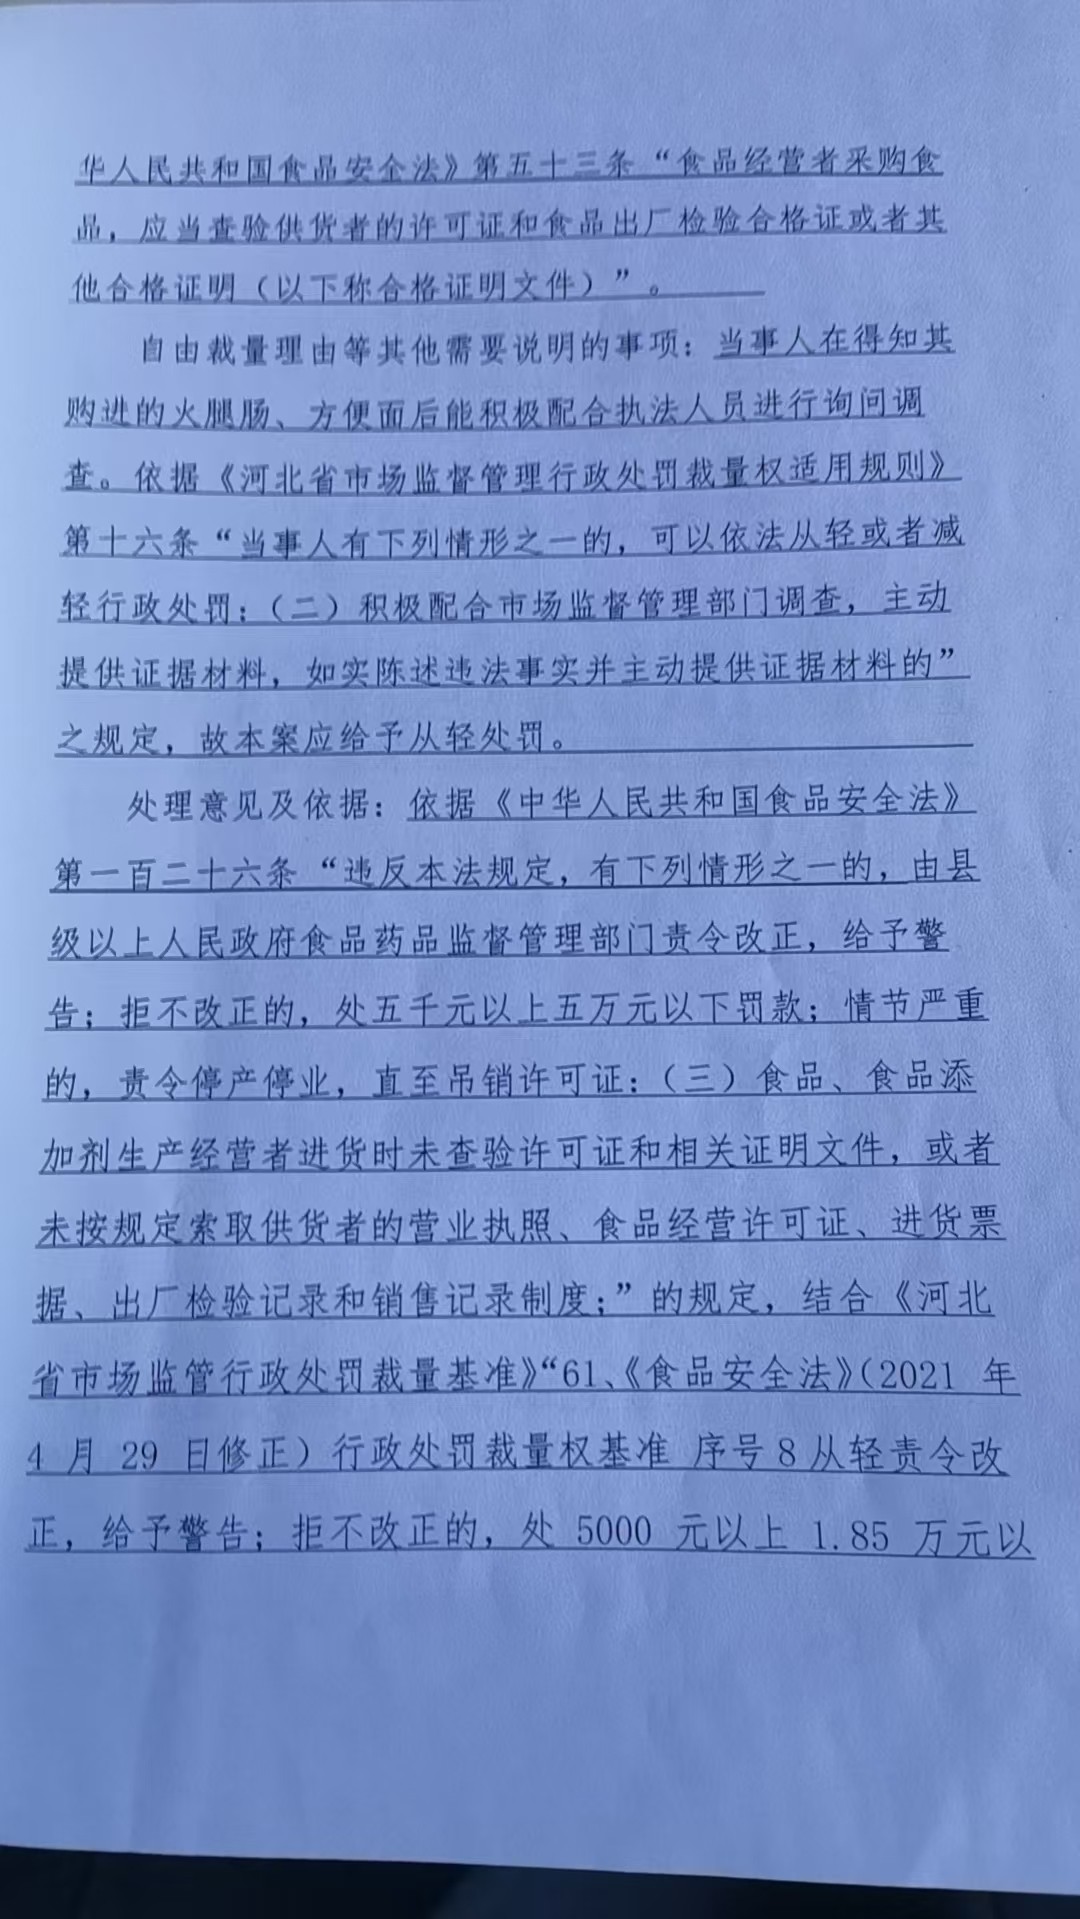 华人民共和国食品安全法》第五十三条“食品经营者采购食
品，应当查验供货者的许可证和食品出厂检验合格证或者其
他合格证明（以下称合格证明文件）”。
自由裁量理由等其他需要说明的事项：当事人在得知其
购进的火腿肠、方便面后能积极配合执法人员进行询问调
查。依据《河北省市场监督管理行政处罚裁量权适用规则》
第十六条“当事人有下列情形之一的，可以依法从轻或者减
轻行政处罚：（二）积极配合市场监督管理部门调查，主动
提供证据材料，如实陈述违法事实并主动提供证据材料的”
之规定，故本案应给予从轻处罚。
处理意见及依据：依据《中华人民共和国食品安全法》
第一百二十六条“违反本法规定，有下列情形之一的，由县
级以上人民政府食品药品监督管理部门责令改正，给予警
告；拒不改正的，处五千元以上五万元以下罚款；情节严重
的，责令停产停业，直至吊销许可证：（三）食品、食品添
加剂生产经营者进货时未查验许可证和相关证明文件，或者
未按规定索取供货者的营业执照、食品经营许可证、进货票
据、出厂检验记录和销售记录制度；”的规定，结合《河北
省市场监管行政处罚裁量基准》“61、《食品安全法》（2021 年
4 月 29 日修正）行政处罚裁量权基准 序号8从轻责令改
正，给予警告；拒不改正的，处 5000 元以上 1.85 万元以